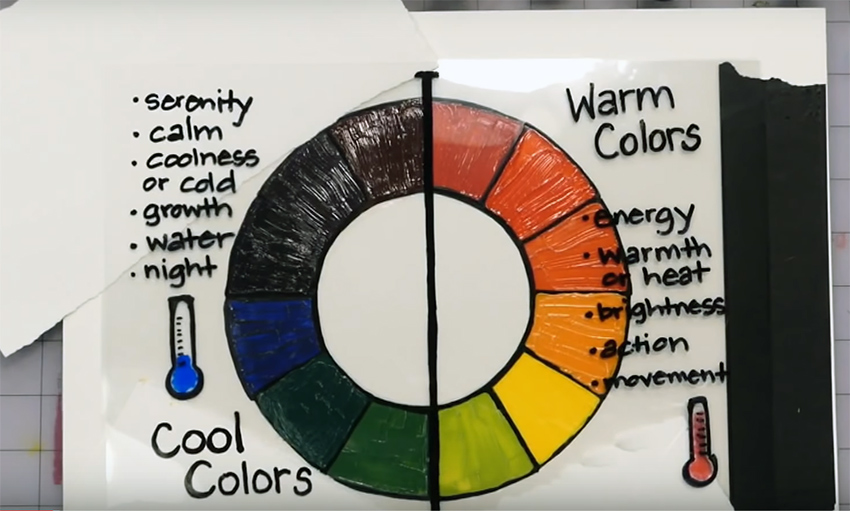 • serenity
• calm
• coolness
or cold
• growth
• water
• night
Cool
Colors
Warm
Colors
• energy
• warmth
or heat
• brightness
• action
• movement